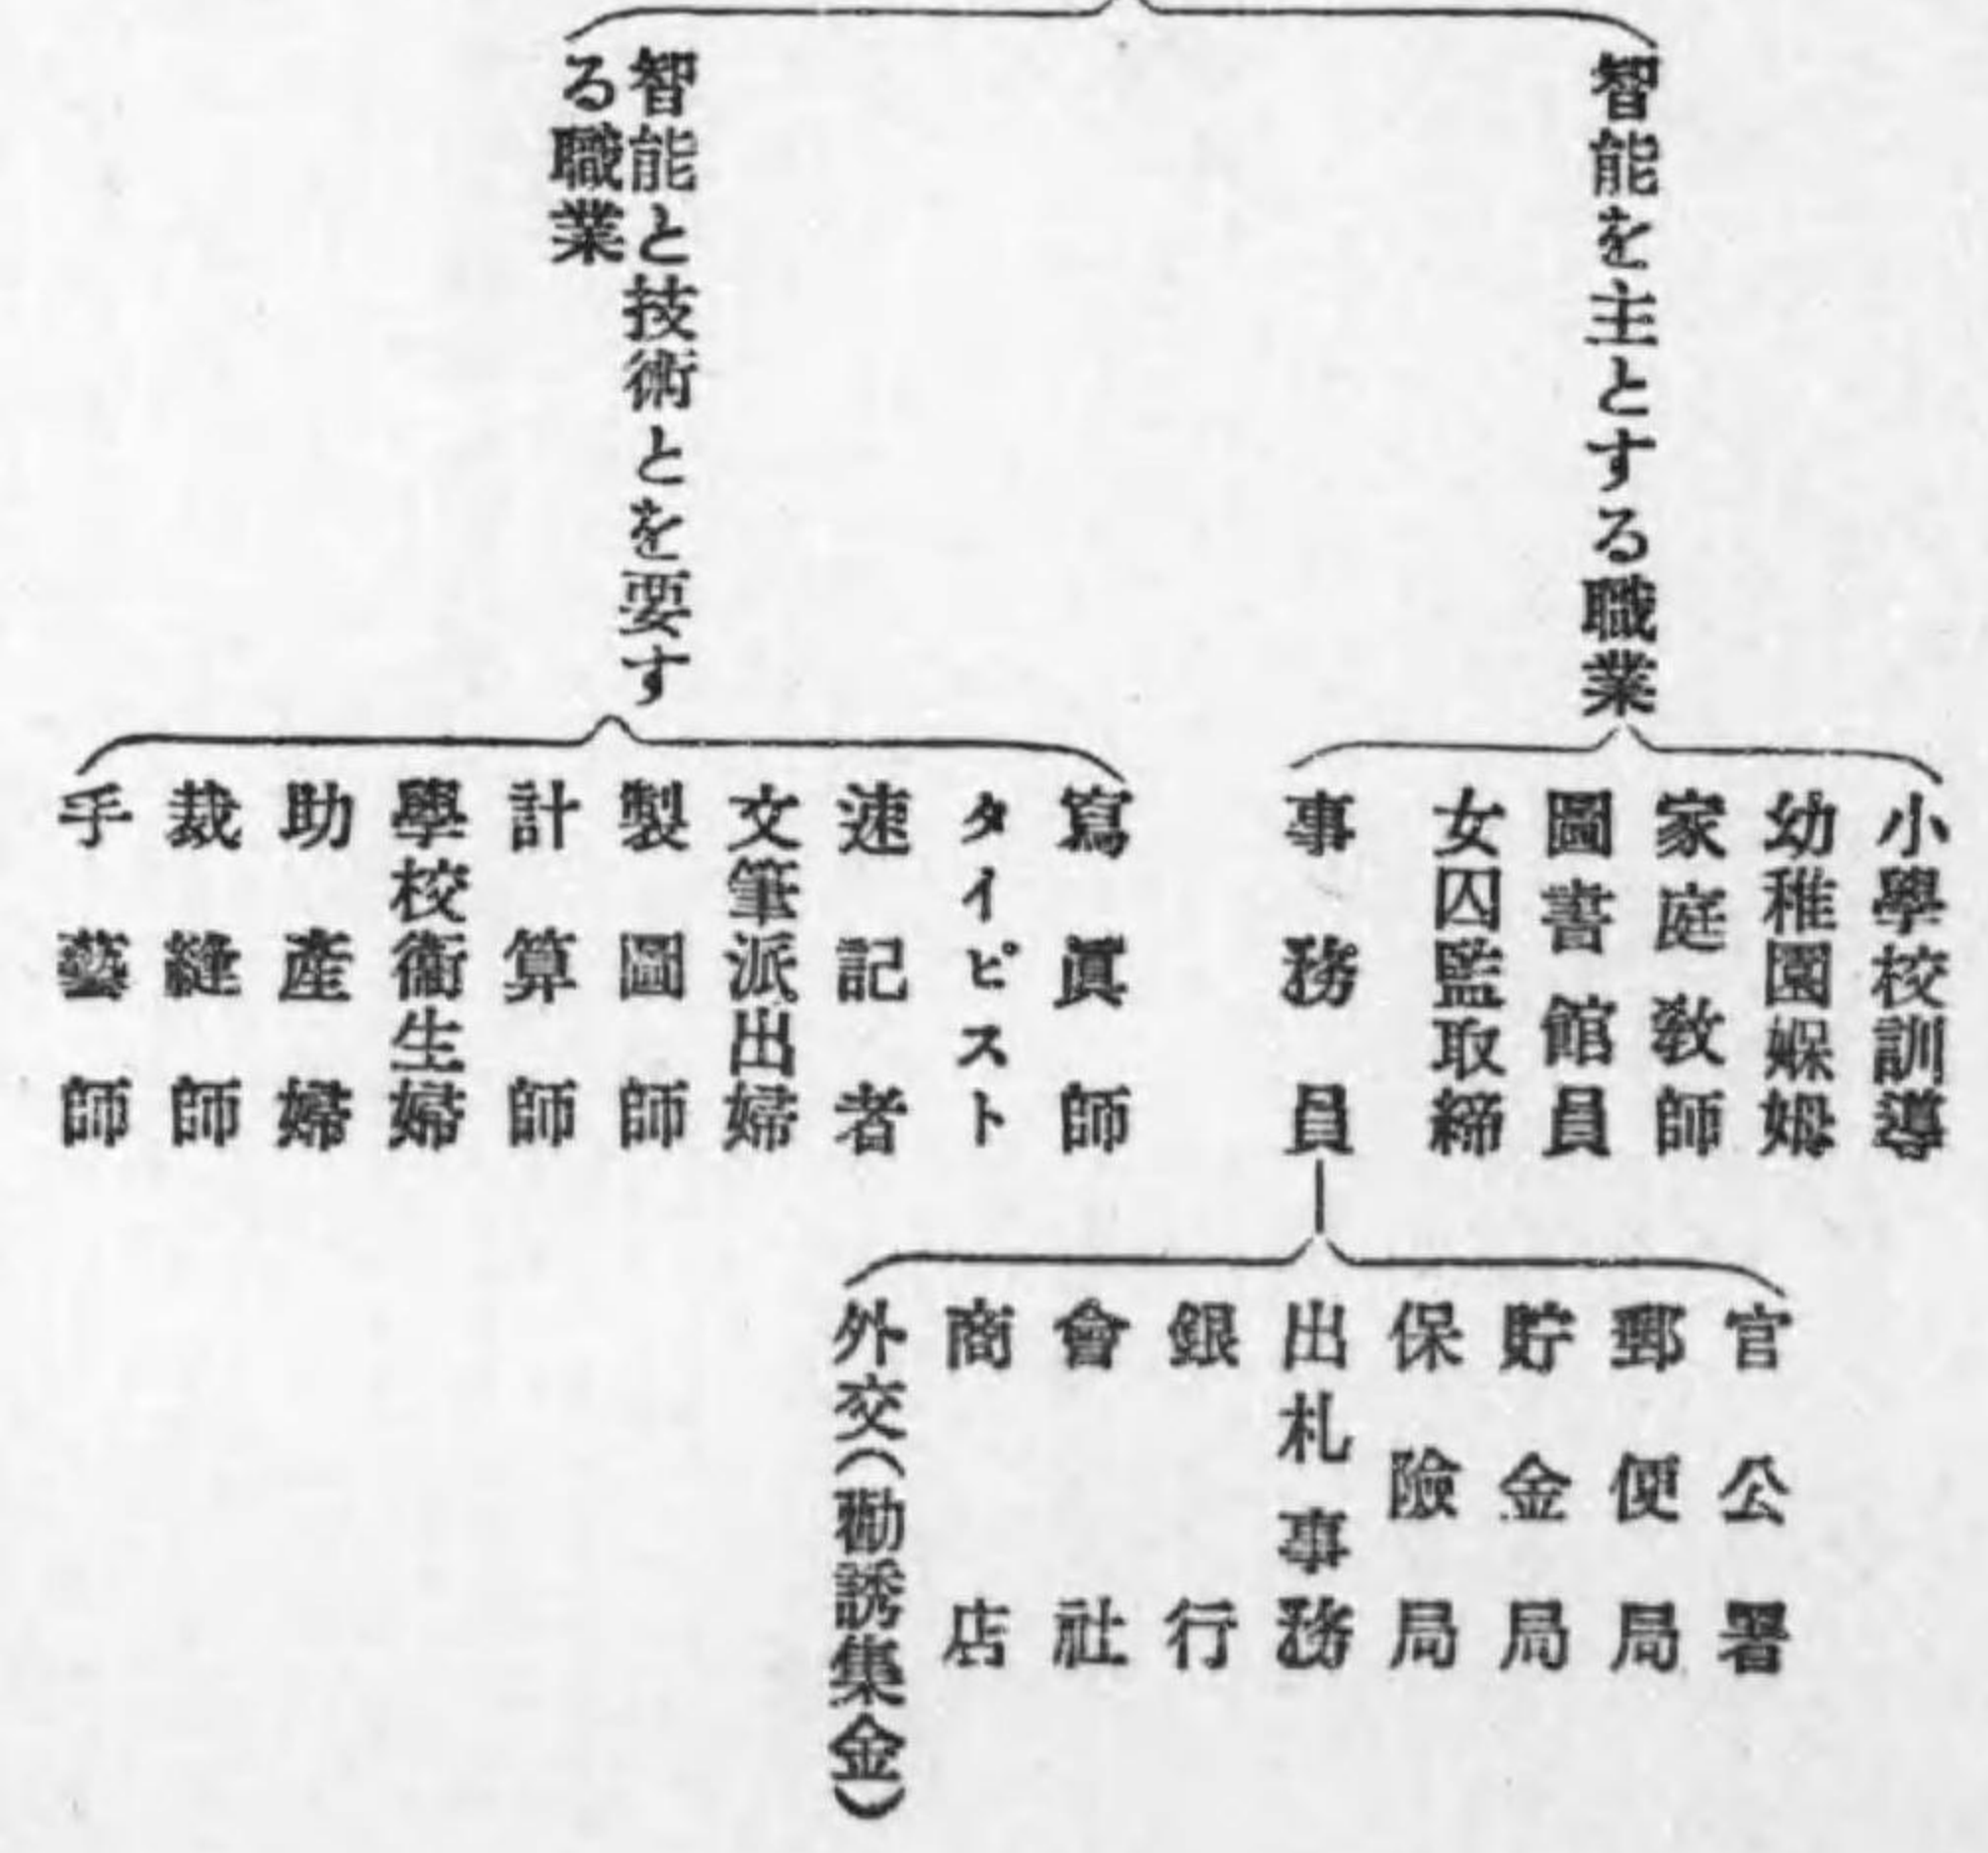 智能を主とする職業
小學校訓導
幼稚園媬姆
家庭教師
圖書館員
女囚監取締
事務員
官公署
郵便局
貯金局
保險局
出札事務
銀行
會社
商店
外交(勸誘集金)
智能と技術とを要す
る職業
寫眞師
タイピスト
速記者
文筆派出婦
製圖師
計算師
學校衞生婦
助產婦
裁縫師
手藝師